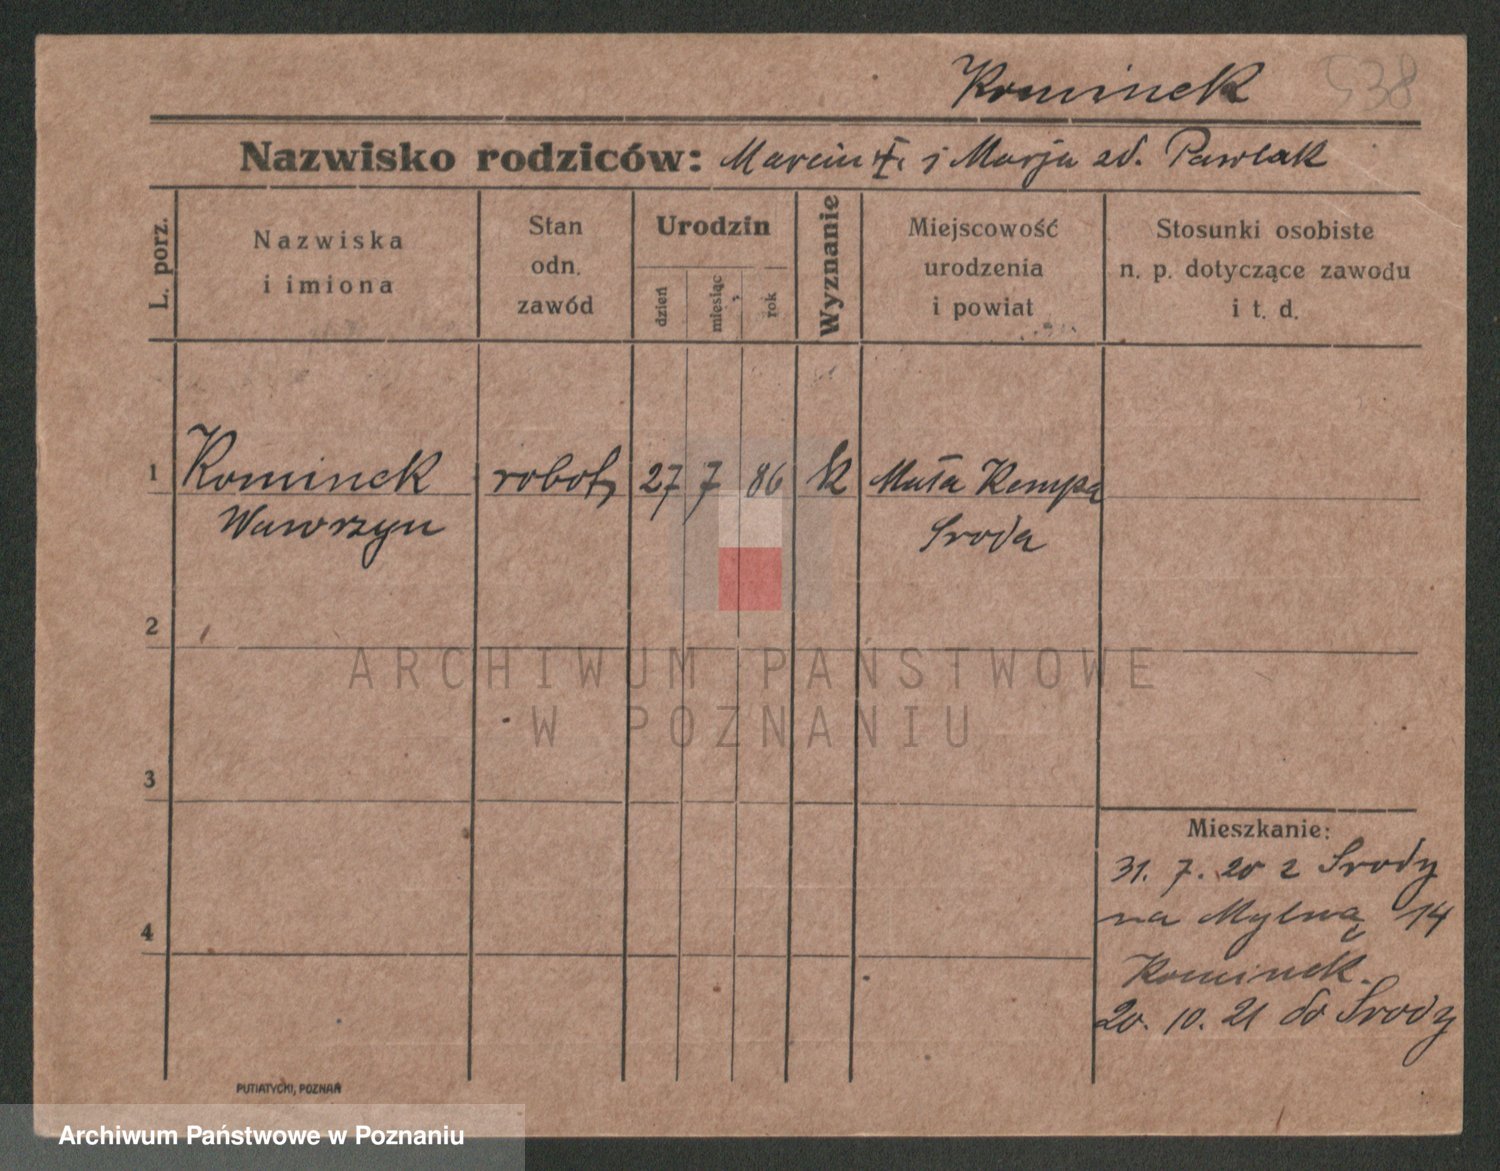 Kominek 538
Nazwisko rodziców: Marcin i Marja zd. Pawlak
L. porz.
Nazwiska
i imiona
Stan
odn.
zawód
Urodzin
dzień
miesiąc
rok
Wyznanie
Miejscowość
urodzenia
i powiat
Stosunki osobiste
n. p. dotyczące zawodu
i t. d.
1 Kominek robot. 27 7 86 k Mała Kempa
Wawrzyn Sroda
2
ARCHIWUM PAŃSTWOWE
W POZNANIU
3
Mieszkanie:
31. 7. 20 z Srody
na Mylną 14
4
Kominek.
20. 10. 21 do Srody
PUTIATYCKI, POZNAŃ
Archiwum Państwowe w Poznaniu